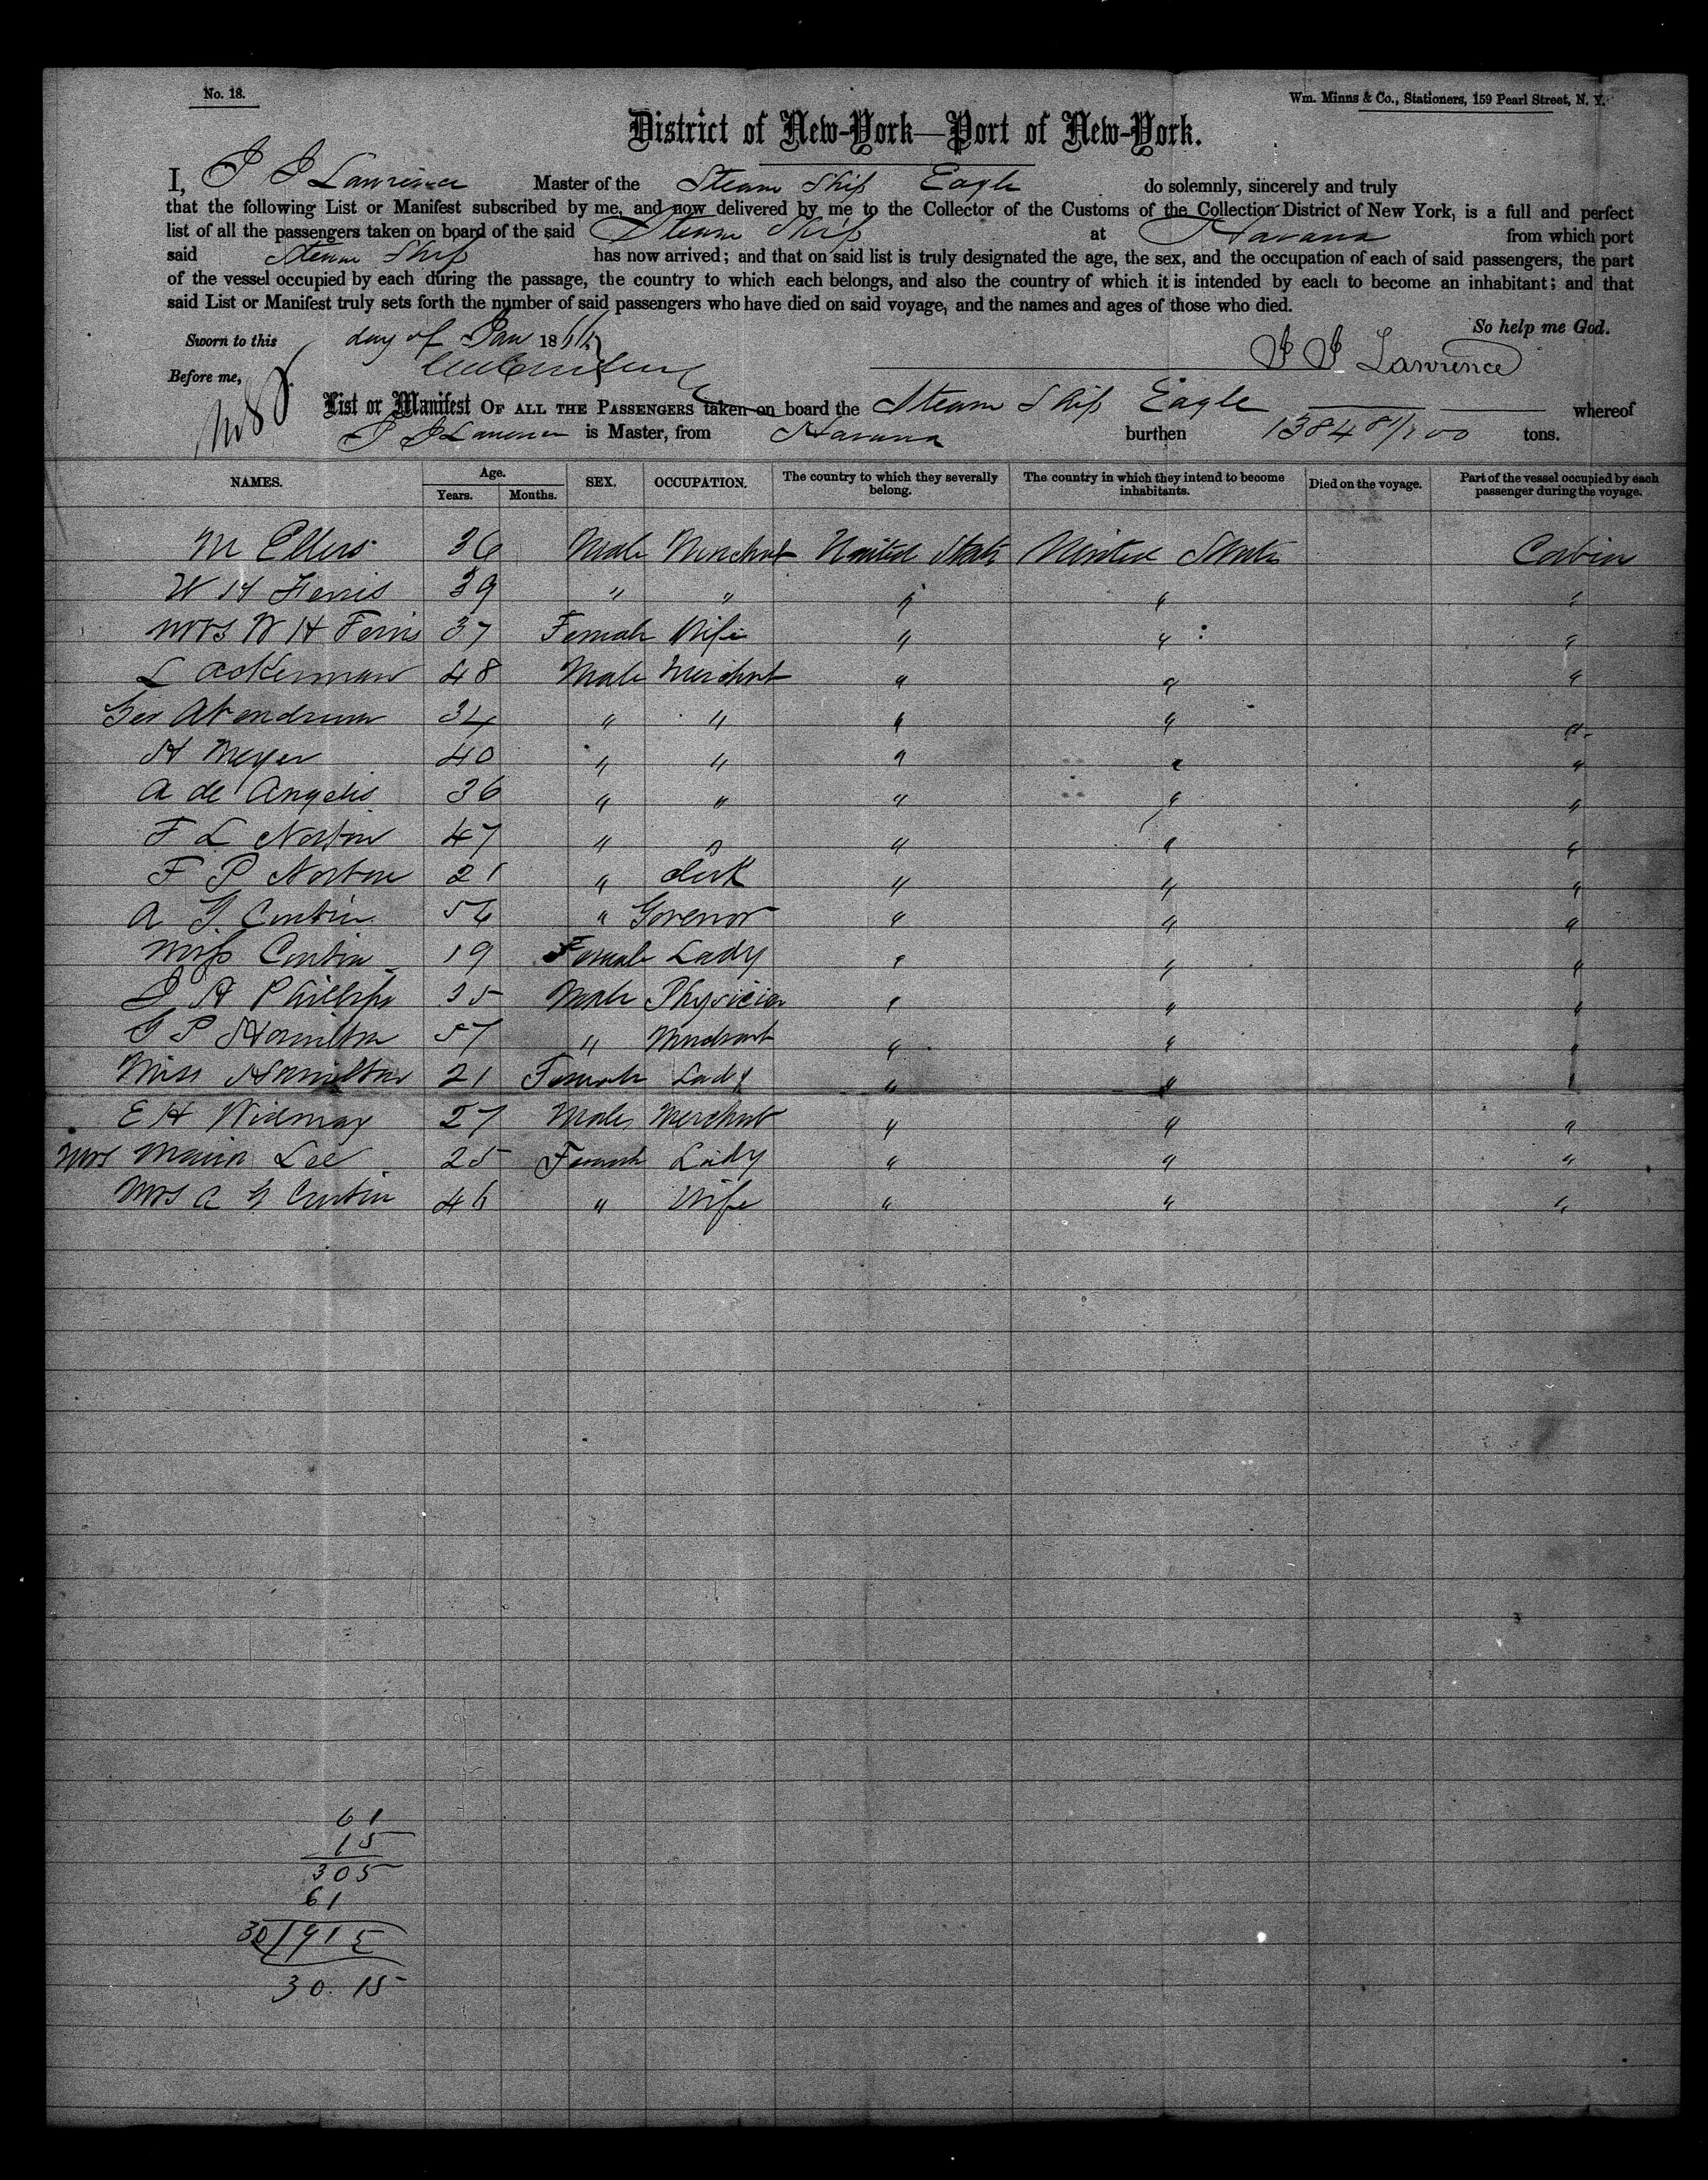 No. 18.
Wm. Minns & Co., Stationers, 159 Pearl Street, N. Y.
District of New-York—Port of New-York.
I, J J Lawrence Master of the Steam Ship Eagle do solemnly, sincerely and truly
that the following List or Manifest subscribed by me, and now delivered by me to the Collector of the Customs of the Collection District of New York, is a full and perfect
list of all the passengers taken on board of the said Steam Ship at Havana from which port
said Steam Ship has now arrived; and that on said list is truly designated the age, the sex, and the occupation of each of said passengers, the part
of the vessel occupied by each during the passage, the country to which each belongs, and also the country of which it is intended by each to become an inhabitant; and that
said List or Manifest truly sets forth the number of said passengers who have died on said voyage, and the names and ages of those who died.
So help me God.
Sworn to this day of Jan 1866
J J Lawrence
Before me,
List or Manifest OF ALL THE PASSENGERS taken on board the Steam Ship Eagle whereof
J J Lawrence is Master, from Havana burthen 1384 81/100 tons.
NAMES. Age. Years. Months. SEX. OCCUPATION. The country to which they severally belong. The country in which they intend to become inhabitants. Died on the voyage. Part of the vessel occupied by each passenger during the voyage.
M Ellers 36 Male Merchant United States United States Cabin
W H Ferris 39 " " " " "
Mrs W H Ferris 37 Female Wife " " "
L Ackerman 48 Male Merchant " " "
Geo 34 " " " " "
H Meyer 40 " " " " "
A de Angelis 36 " " " " "
F L Norton 47 " " " " "
F P Norton 21 " Clerk " " "
A G Curtin 56 " Govenor " " "
Miss Curtin 19 Female Lady " " "
J H Phillips 35 Male Physician " " "
G P Hamilton 57 " Merchant " " "
Miss Hamilton 21 Female Lady " " "
E H Widmay 27 Male Merchant " " "
Mrs Maria Lee 25 Female Lady " " "
Mrs A G Curtin 46 " Wife " " "
61
15
305
61
30/915
30.15